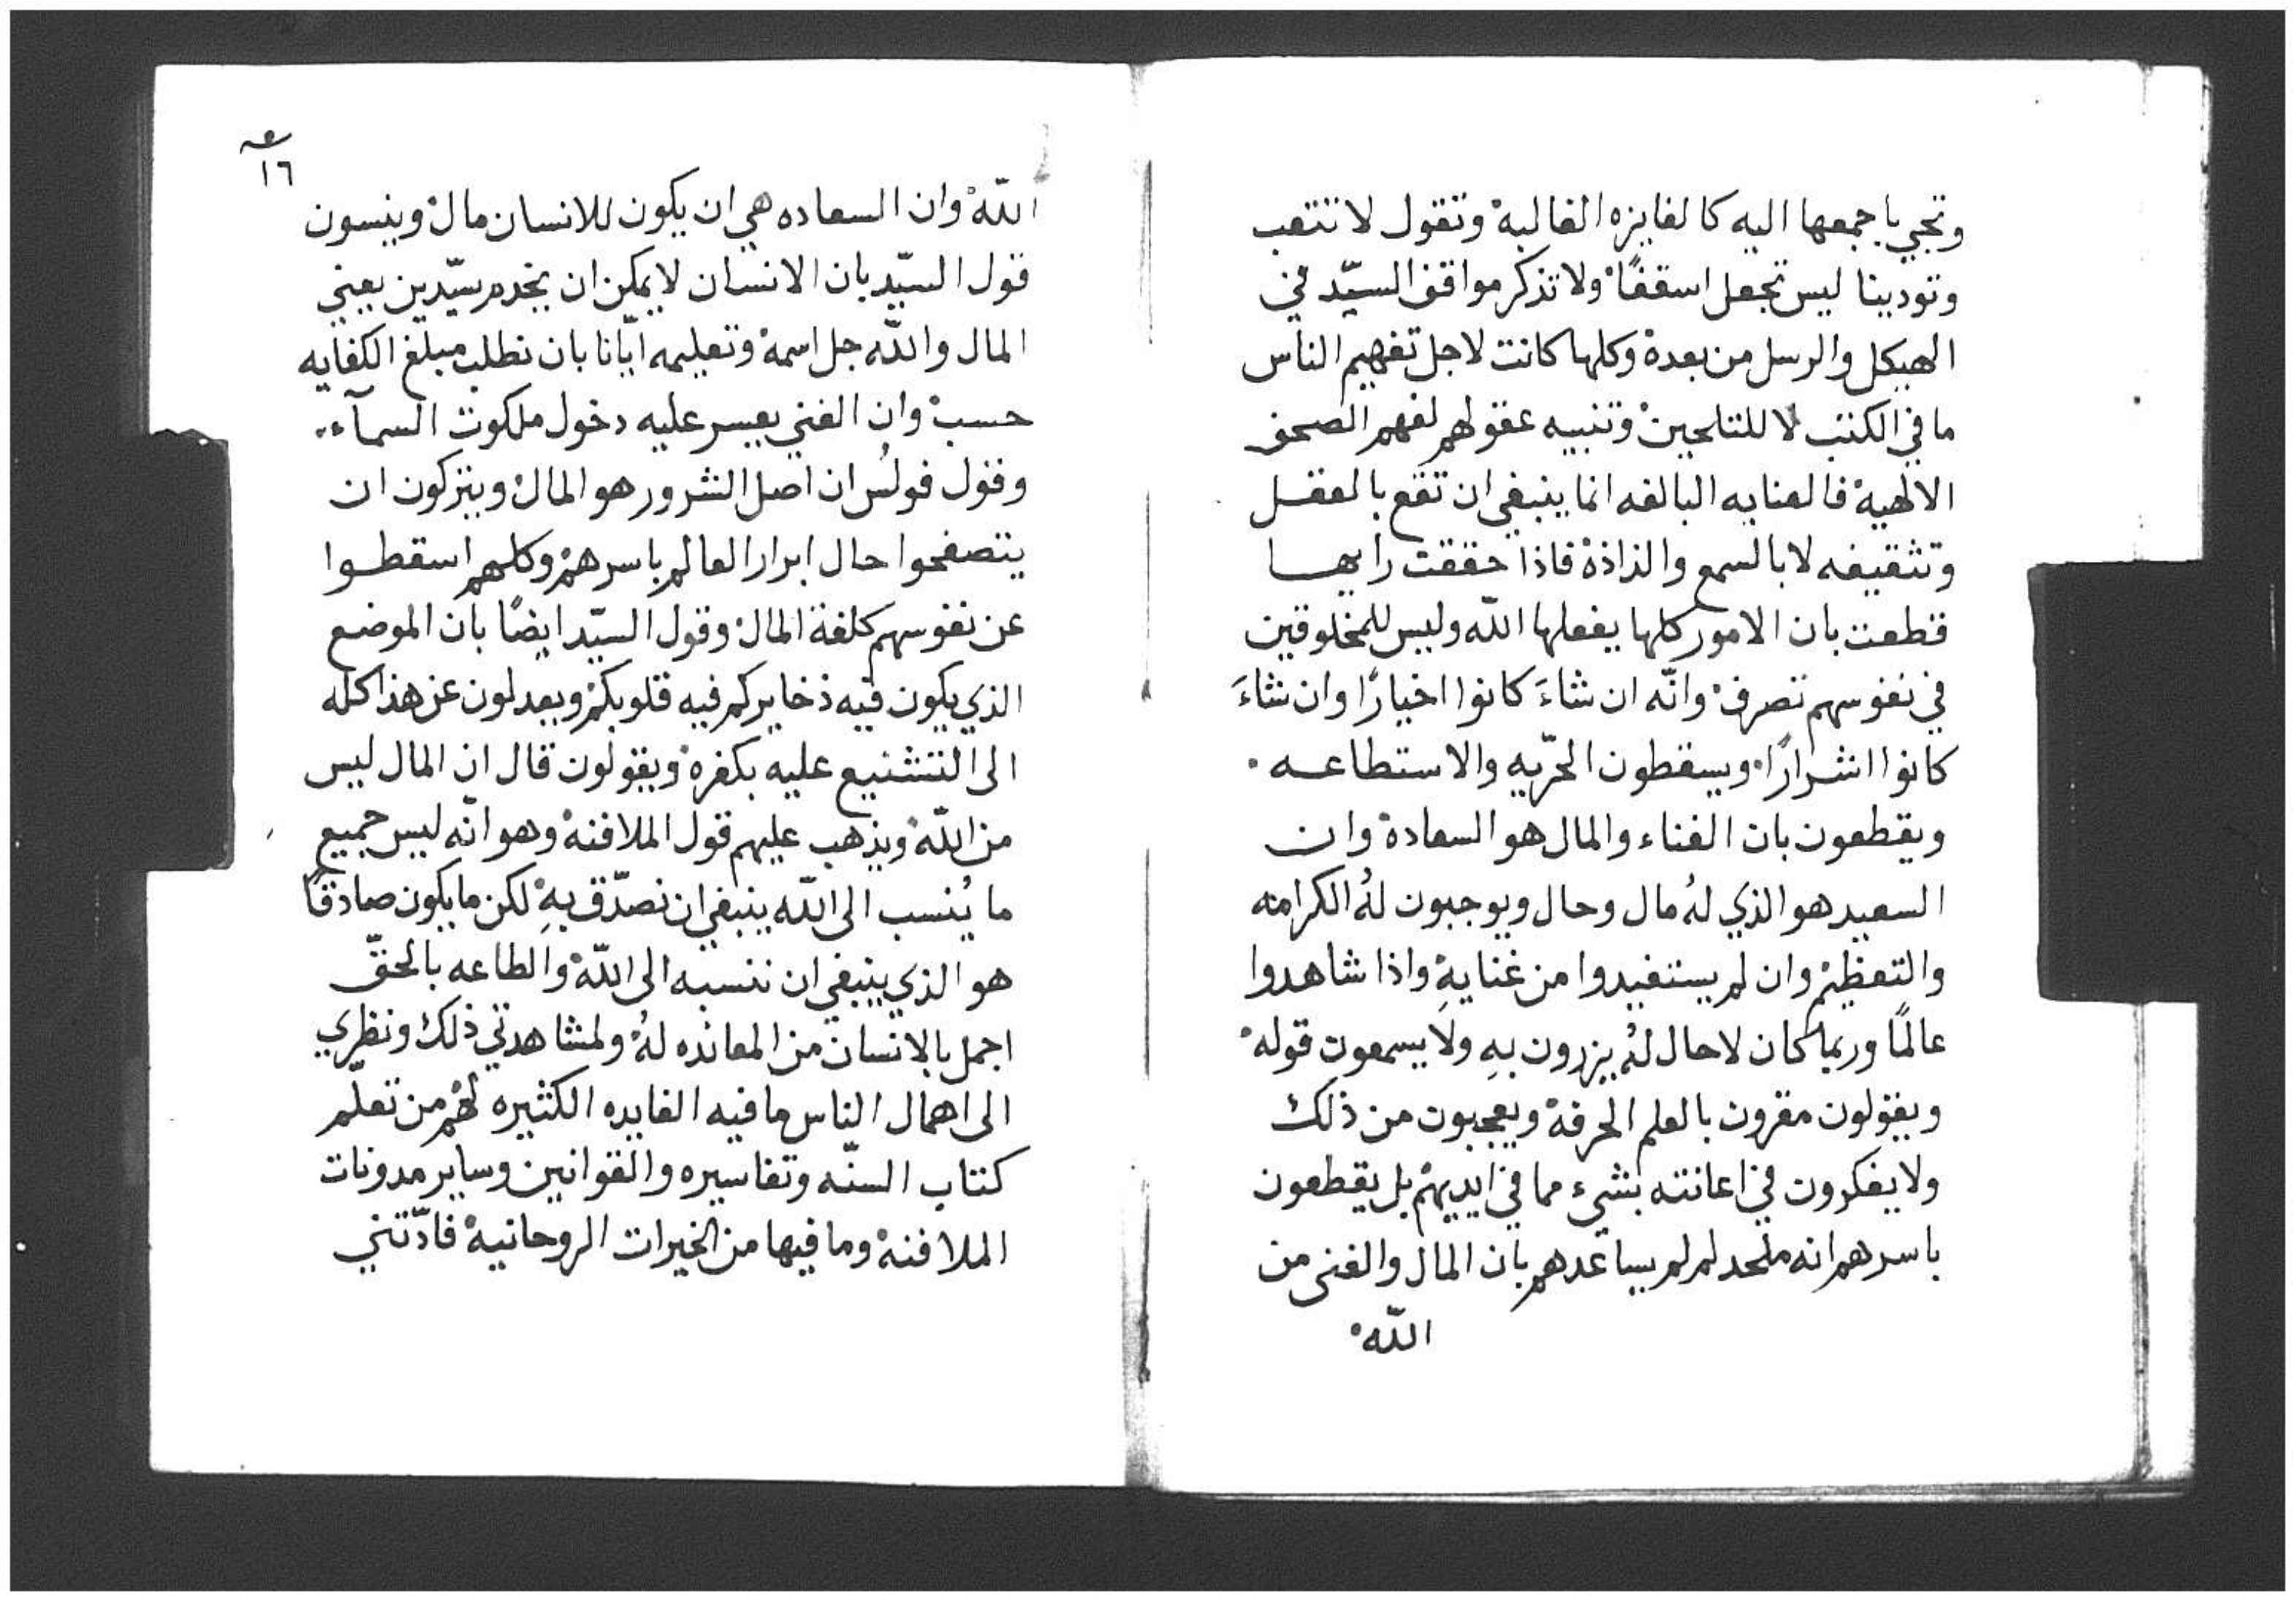 وتجي باجمعها اليه كالفايزه الغالبة وتقول لا تتعب
وتودينا ليس تجعل اسقفًا ولا تذكر مواقف السيّد في
الهيكل والرسل من بعدة وكلها كانت لاجل تفهيم الناس
ما في الكتب لا للتلحين وتنبيه عقولهم لفهم الصحف
الالهية فالعنايه البالغه انما ينبغي ان تقع بالعقل
وتثقيفه لا بالسمع والذاذة فاذا حققت رايها
قطعت بان الامور كلها يفعلها الله وليس للمخلوقين
في نفوسهم تصرف وانّه ان شاءَ كانوا اخيارًا وان شاءَ
كانوا اشرارًا ويسقطون الحرّيه والاستطاعه
ويقطعون بان الغناء والمال هو السعادة وان
السعيد هو الذي لهُ مال وحال ويوجبون لهُ الكرامه
والتعظيم وان لم يستفيدوا من غنايهِ واذا شاهدوا
عالمًا وربما كان لا حال لهُ يزرون بهِ ولا يسمعون قوله
ويقولون مقرون بالعلم الحرفة ويعجبون من ذلك
ولا يفكرون في اعانته بشيء مما في ايديهم بل يقطعون
باسرهم انه ملحد لم لم يساعدهم بان المال والغنى من
الله
١٦
الله وان السعاده هي ان يكون للانسان مال وينسون
قول السيّد بان الانسان لا يمكن ان يخدم سيّدين يعني
المال والله جل اسمه وتعليمه ايّانا بان نطلب مبلغ الكفايه
حسب وان الغني يعسر عليه دخول ملكوت السمآء
وقول فولُس ان اصل الشرور هو المال ويتركون ان
يتصفحوا حال ابرار العالم باسرهم وكلهم اسقطوا
عن نفوسهم كلفة المال وقول السيّد ايضًا بان الموضع
الذي يكون فيه ذخايركم فيه قلوبكم ويعدلون عن هذا كله
الى التشنيع عليه بكفره ويقولون قال ان المال ليس
من الله ويذهب عليهم قول الملافنة وهو انّه ليس جميع
ما يُنسب الى الله ينبغي ان نصدّق بهِ لكن ما يكون صادقًا
هو الذي ينبغي ان ننسبه الى الله والطاعه بالحقّ
اجمل بالانسان من المعانده لهُ ولمشاهدتي ذلك ونظري
الى اهمال الناس ما فيه الفايده الكثيره لهم من تعلّم
كتاب السنّه وتفاسيره والقوانين وساير مدونات
الملافنة وما فيها من الخيرات الروحانية فادّتني